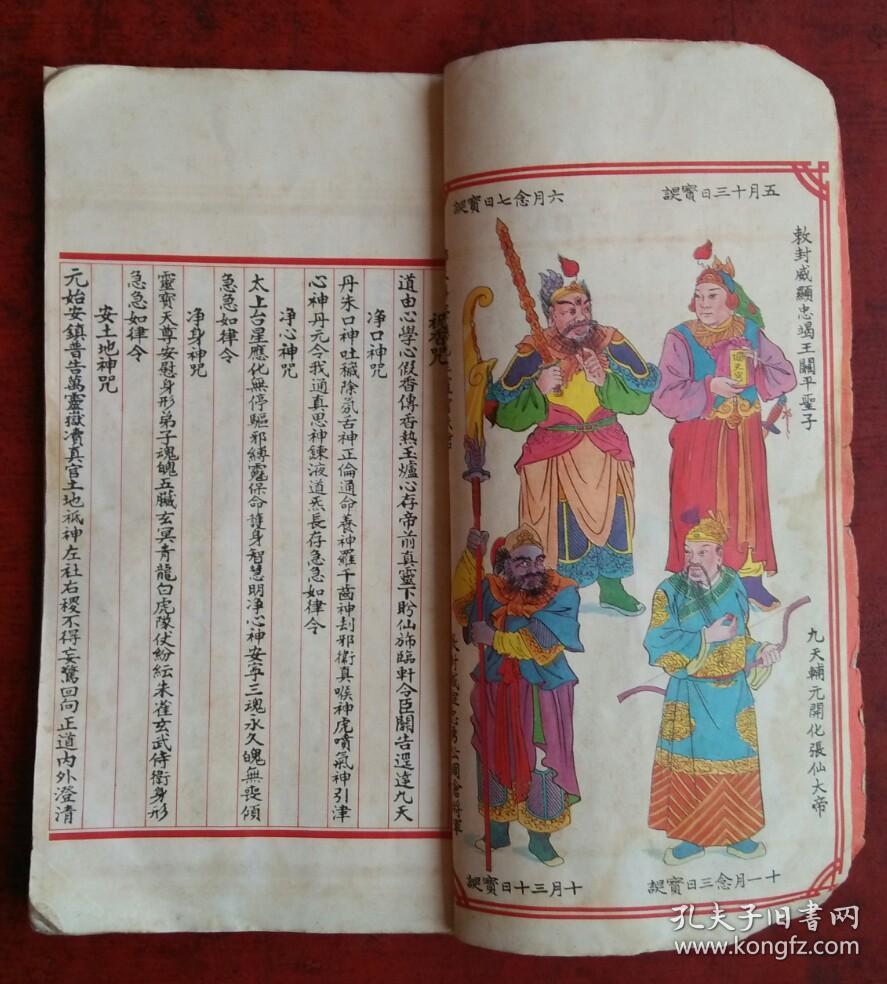 五月十三日寳誕
六月念七日寳誕
敕封威顯忠竭王關平聖子
九天輔元開化張仙大帝
十一月念三日寳誕
十月三十日寳誕
祝香咒
道由心學心假香傳香爇玉爐心存帝前真靈下盼仙斾臨軒令臣關告逕達九天
净口神咒
丹朱口神吐穢除氛舌神正倫通命養神羅千齒神刦邪衛真喉神虎噴氣神引津
心神丹元令我通真思神錬液道炁長存急急如律令
净心神咒
太上台星應化無停驅邪縛鬽保命護身智慧明净心神安寧三魂永久魄無喪傾
急急如律令
净身神咒
靈寳天尊安慰身形弟子魂魄五臟玄冥青龍白虎隊仗紛紜朱雀玄武侍衛身形
急急如律令
安土地神咒
元始安鎮普告萬靈嶽瀆真官土地祇神左社右稷不得妄驚回向正道內外澄清
孔夫子旧書网
www.kongfz.com